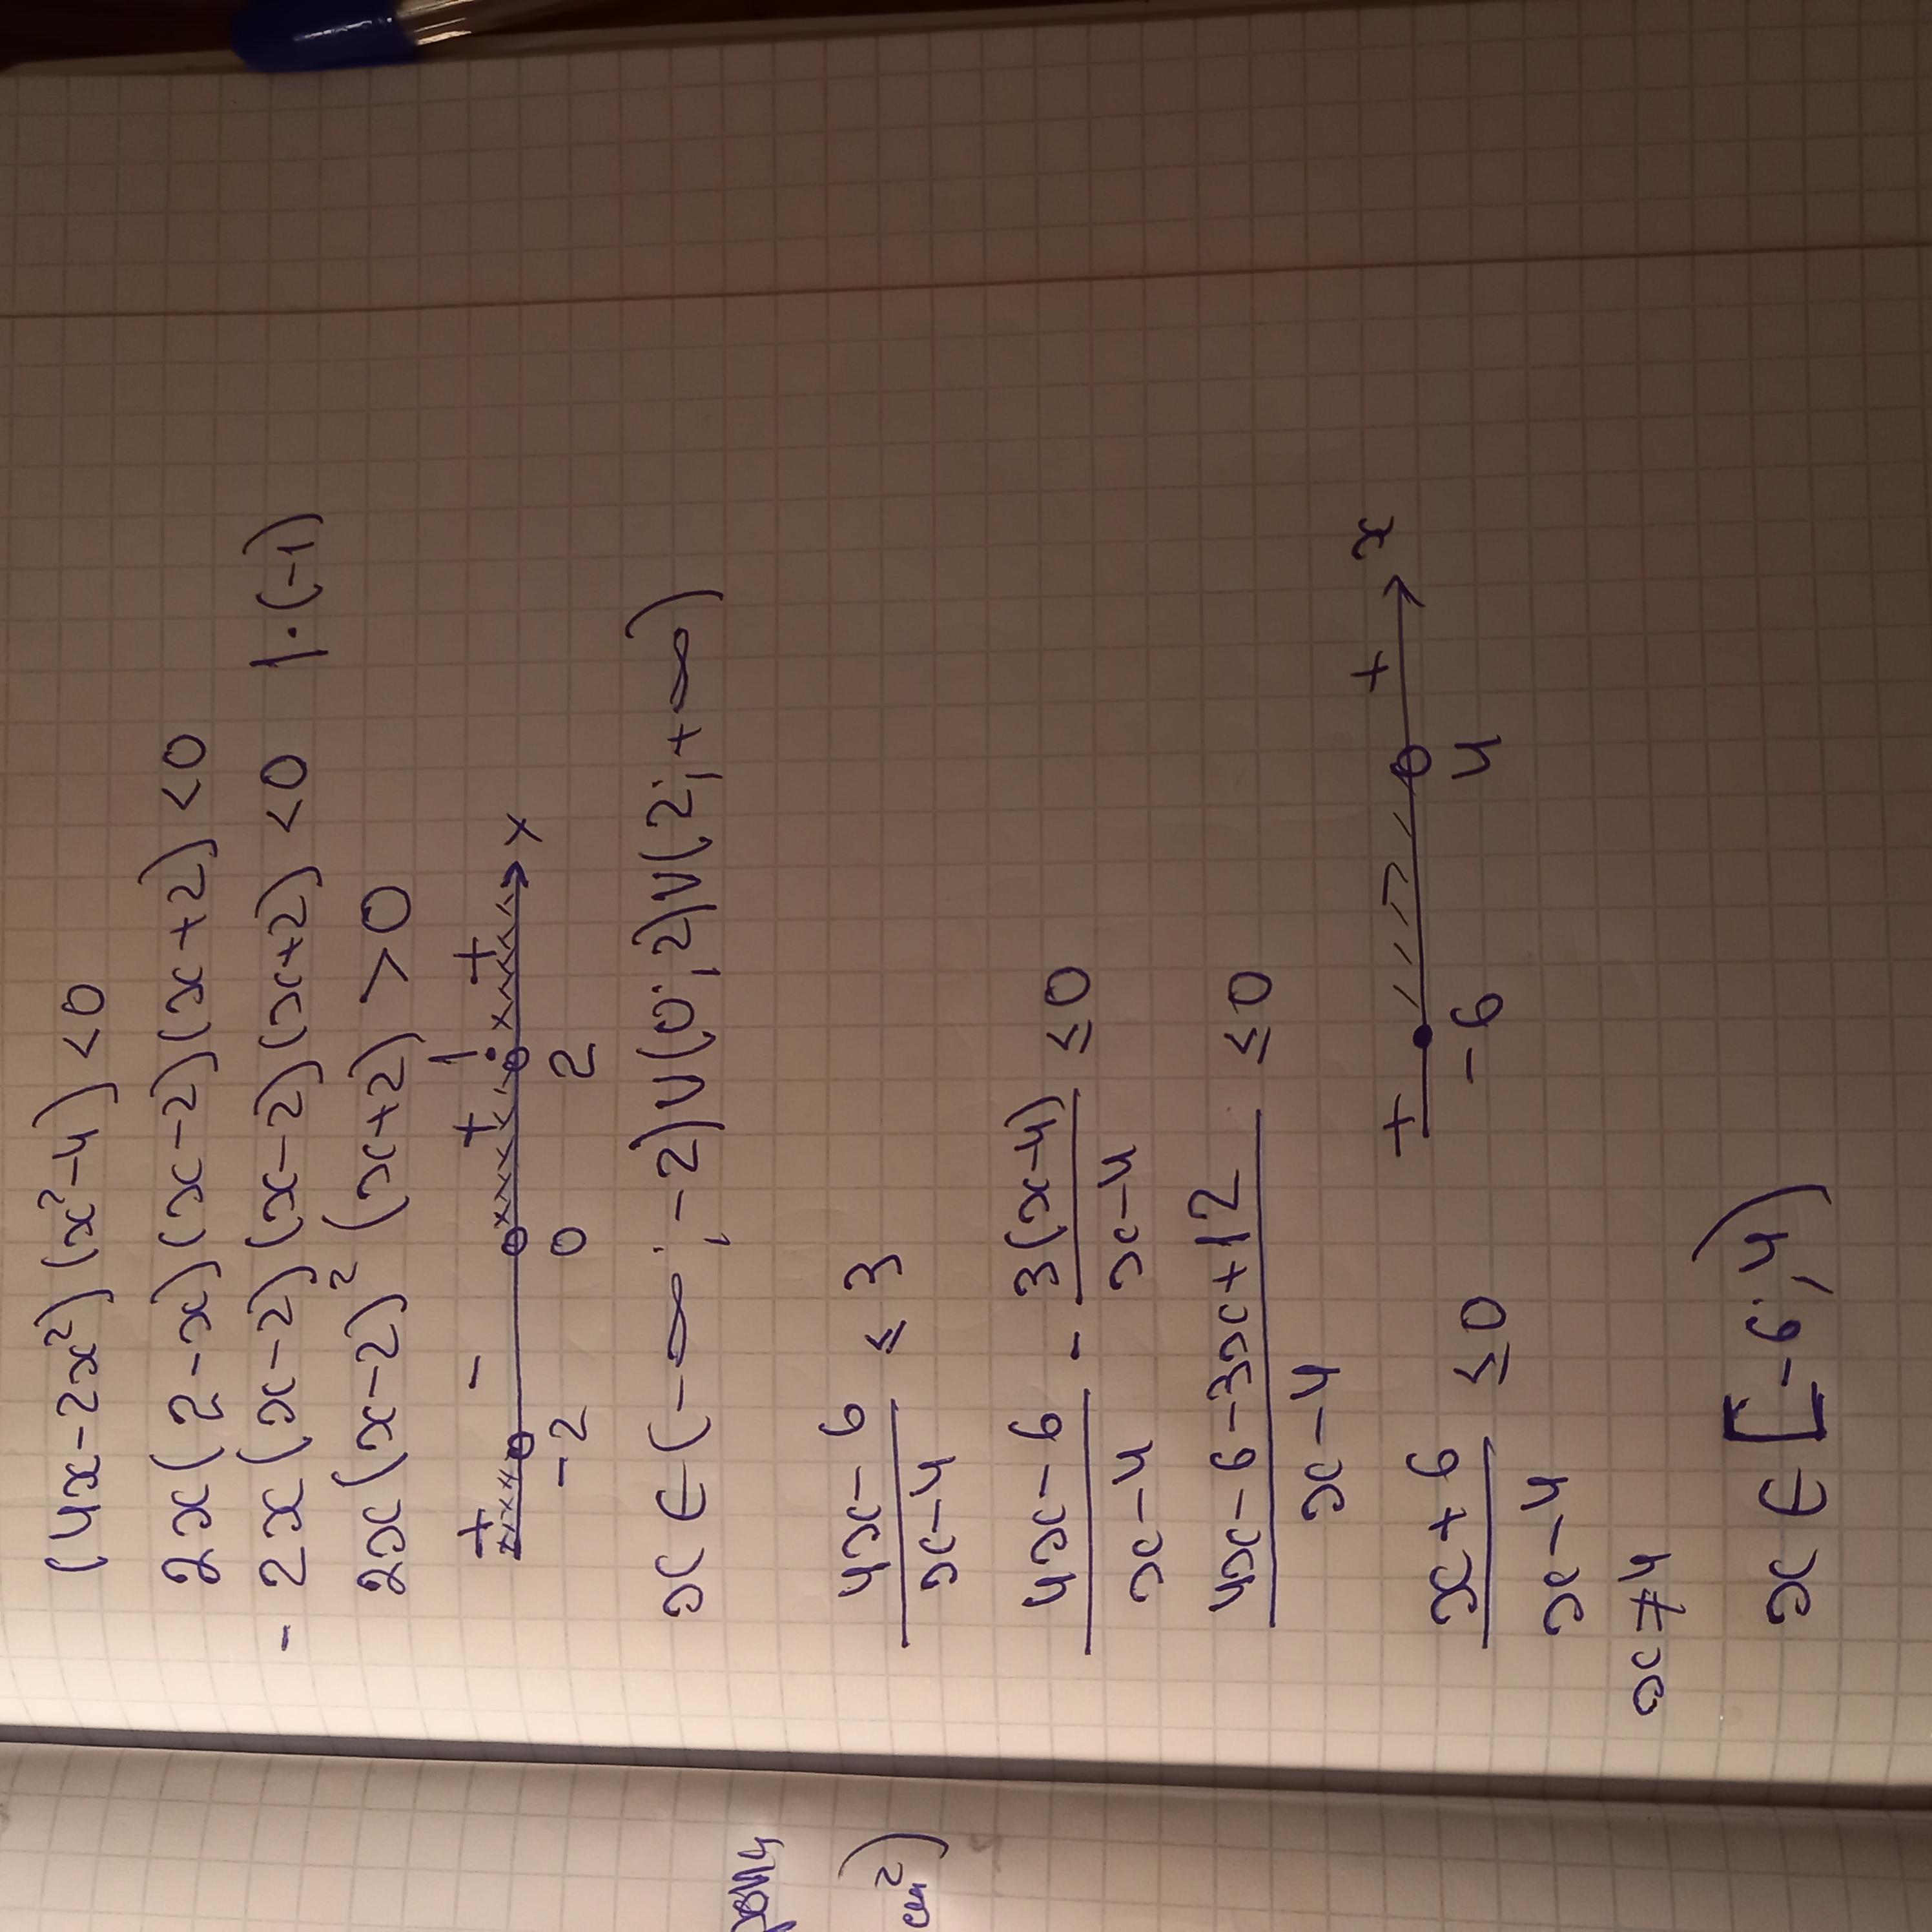 (4x-2x²)(x²-4)<0
2x(2-x)(x-2)(x+2)<0
-2x(x-2)(x-2)(x+2)<0 |·(-1)
2x(x-2)²(x+2)>0
+ - + +
-2 0 2 x
x∈(-∞;-2)∪(0;2)∪(2;+∞)
4x-6
x-4
≤3
4x-6
x-4
-
3(x-4)
x-4
≤0
4x-6-3x+12
x-4
≤0
x+6
x-4
≤0
+ +
-6 4 x
x≠4
x∈[-6;4)